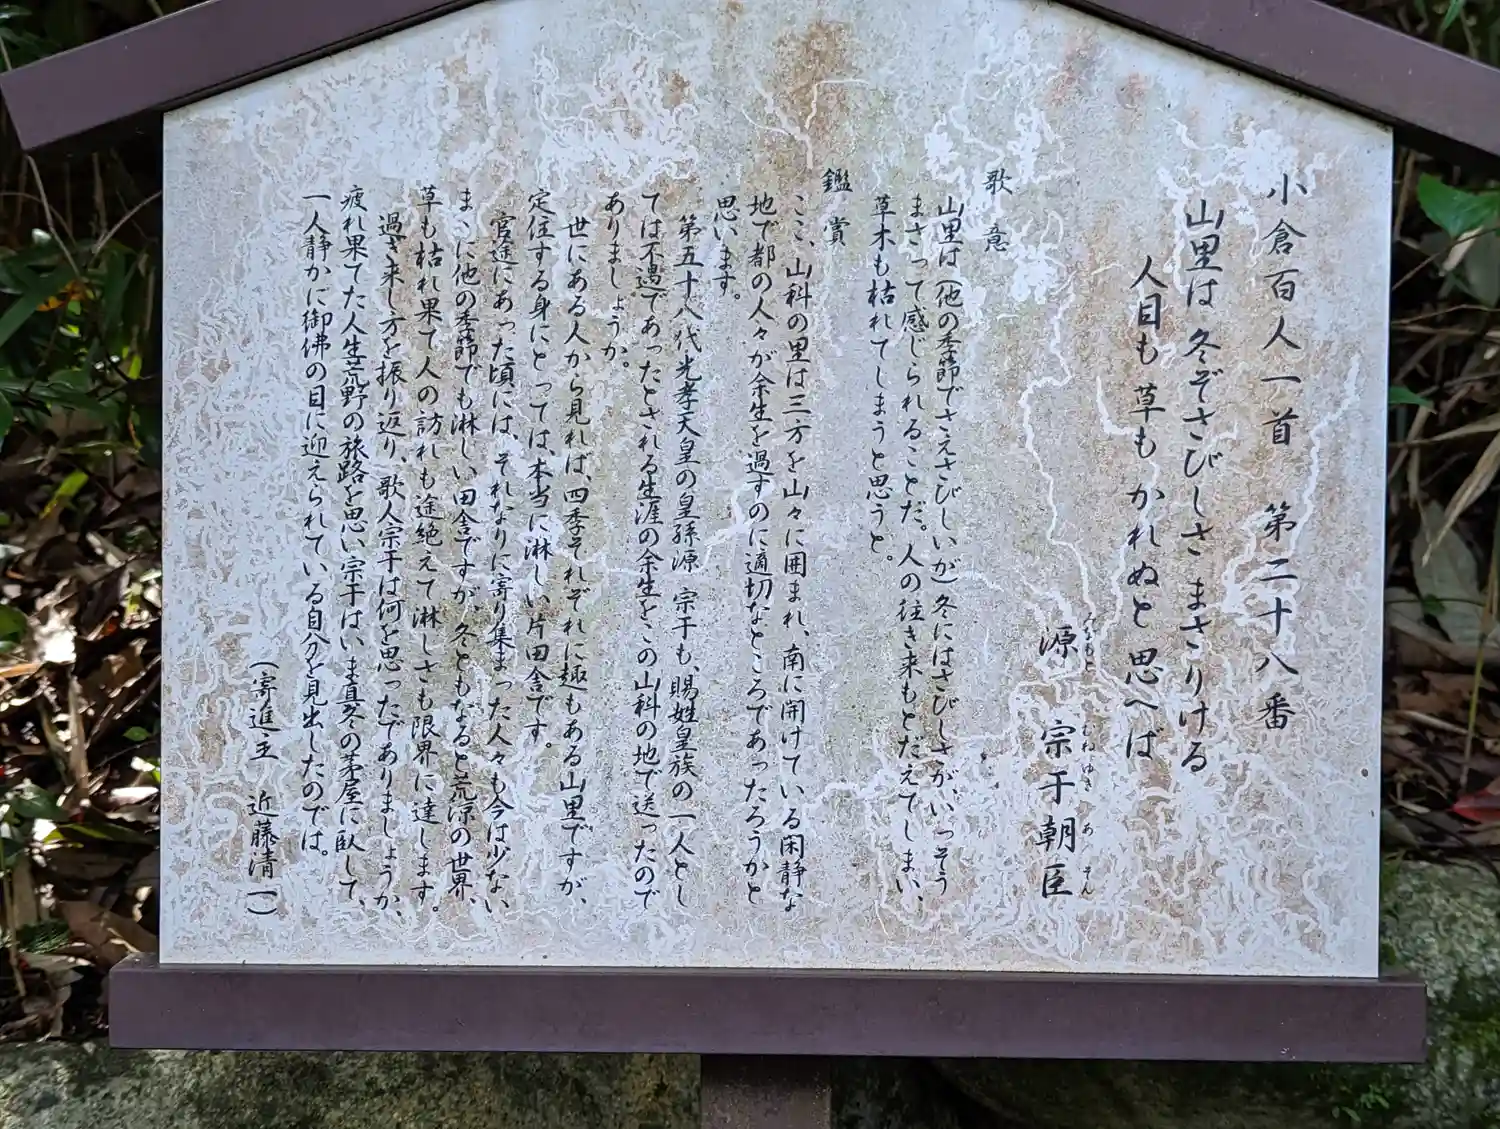 小倉百人一首 第二十八番
山里は 冬ぞさびしさ まさりける
人目も 草も かれぬと 思へば
源 宗于朝臣
みなもと むねゆき あ そん
歌意
山里は(他の季節でさえさびしいが)冬にはさびしさが、いっそう
まさって感じられることだ。人の往き来もとだえてしまい、
草木も枯れてしまうと思うと。
鑑賞
ここ、山科の里は三方を山々に囲まれ、南に開けている閑静な
地で都の人々が余生を過すのに適切なところであったろうかと
思います。
第五十八代光孝天皇の皇孫源 宗于も、賜姓皇族の一人とし
ては不遇であったとされる生涯の余生をこの山科の地で送ったので
ありましょうか。
世にある人から見れば、四季それぞれに趣もある山里ですが、
定住する身にとっては、本当に淋しい片田舎です。
官途にあった頃には、それなりに寄り集まった人々も今は少ない
まゝに他の季節でも淋しい田舎ですが、冬ともなると荒涼の世界、
草も枯れ果て人の訪れも途絶えて淋しさも限界に達します。
過ぎ来し方を振り返り、歌人宗于は何を思ったでありましょうか、
疲れ果てた人生荒野の旅路を思い、宗于はいま真冬の茅屋に臥して、
一人静かに御佛の目に迎えられている自分を見出したのでは。
(寄進主 近藤清一)